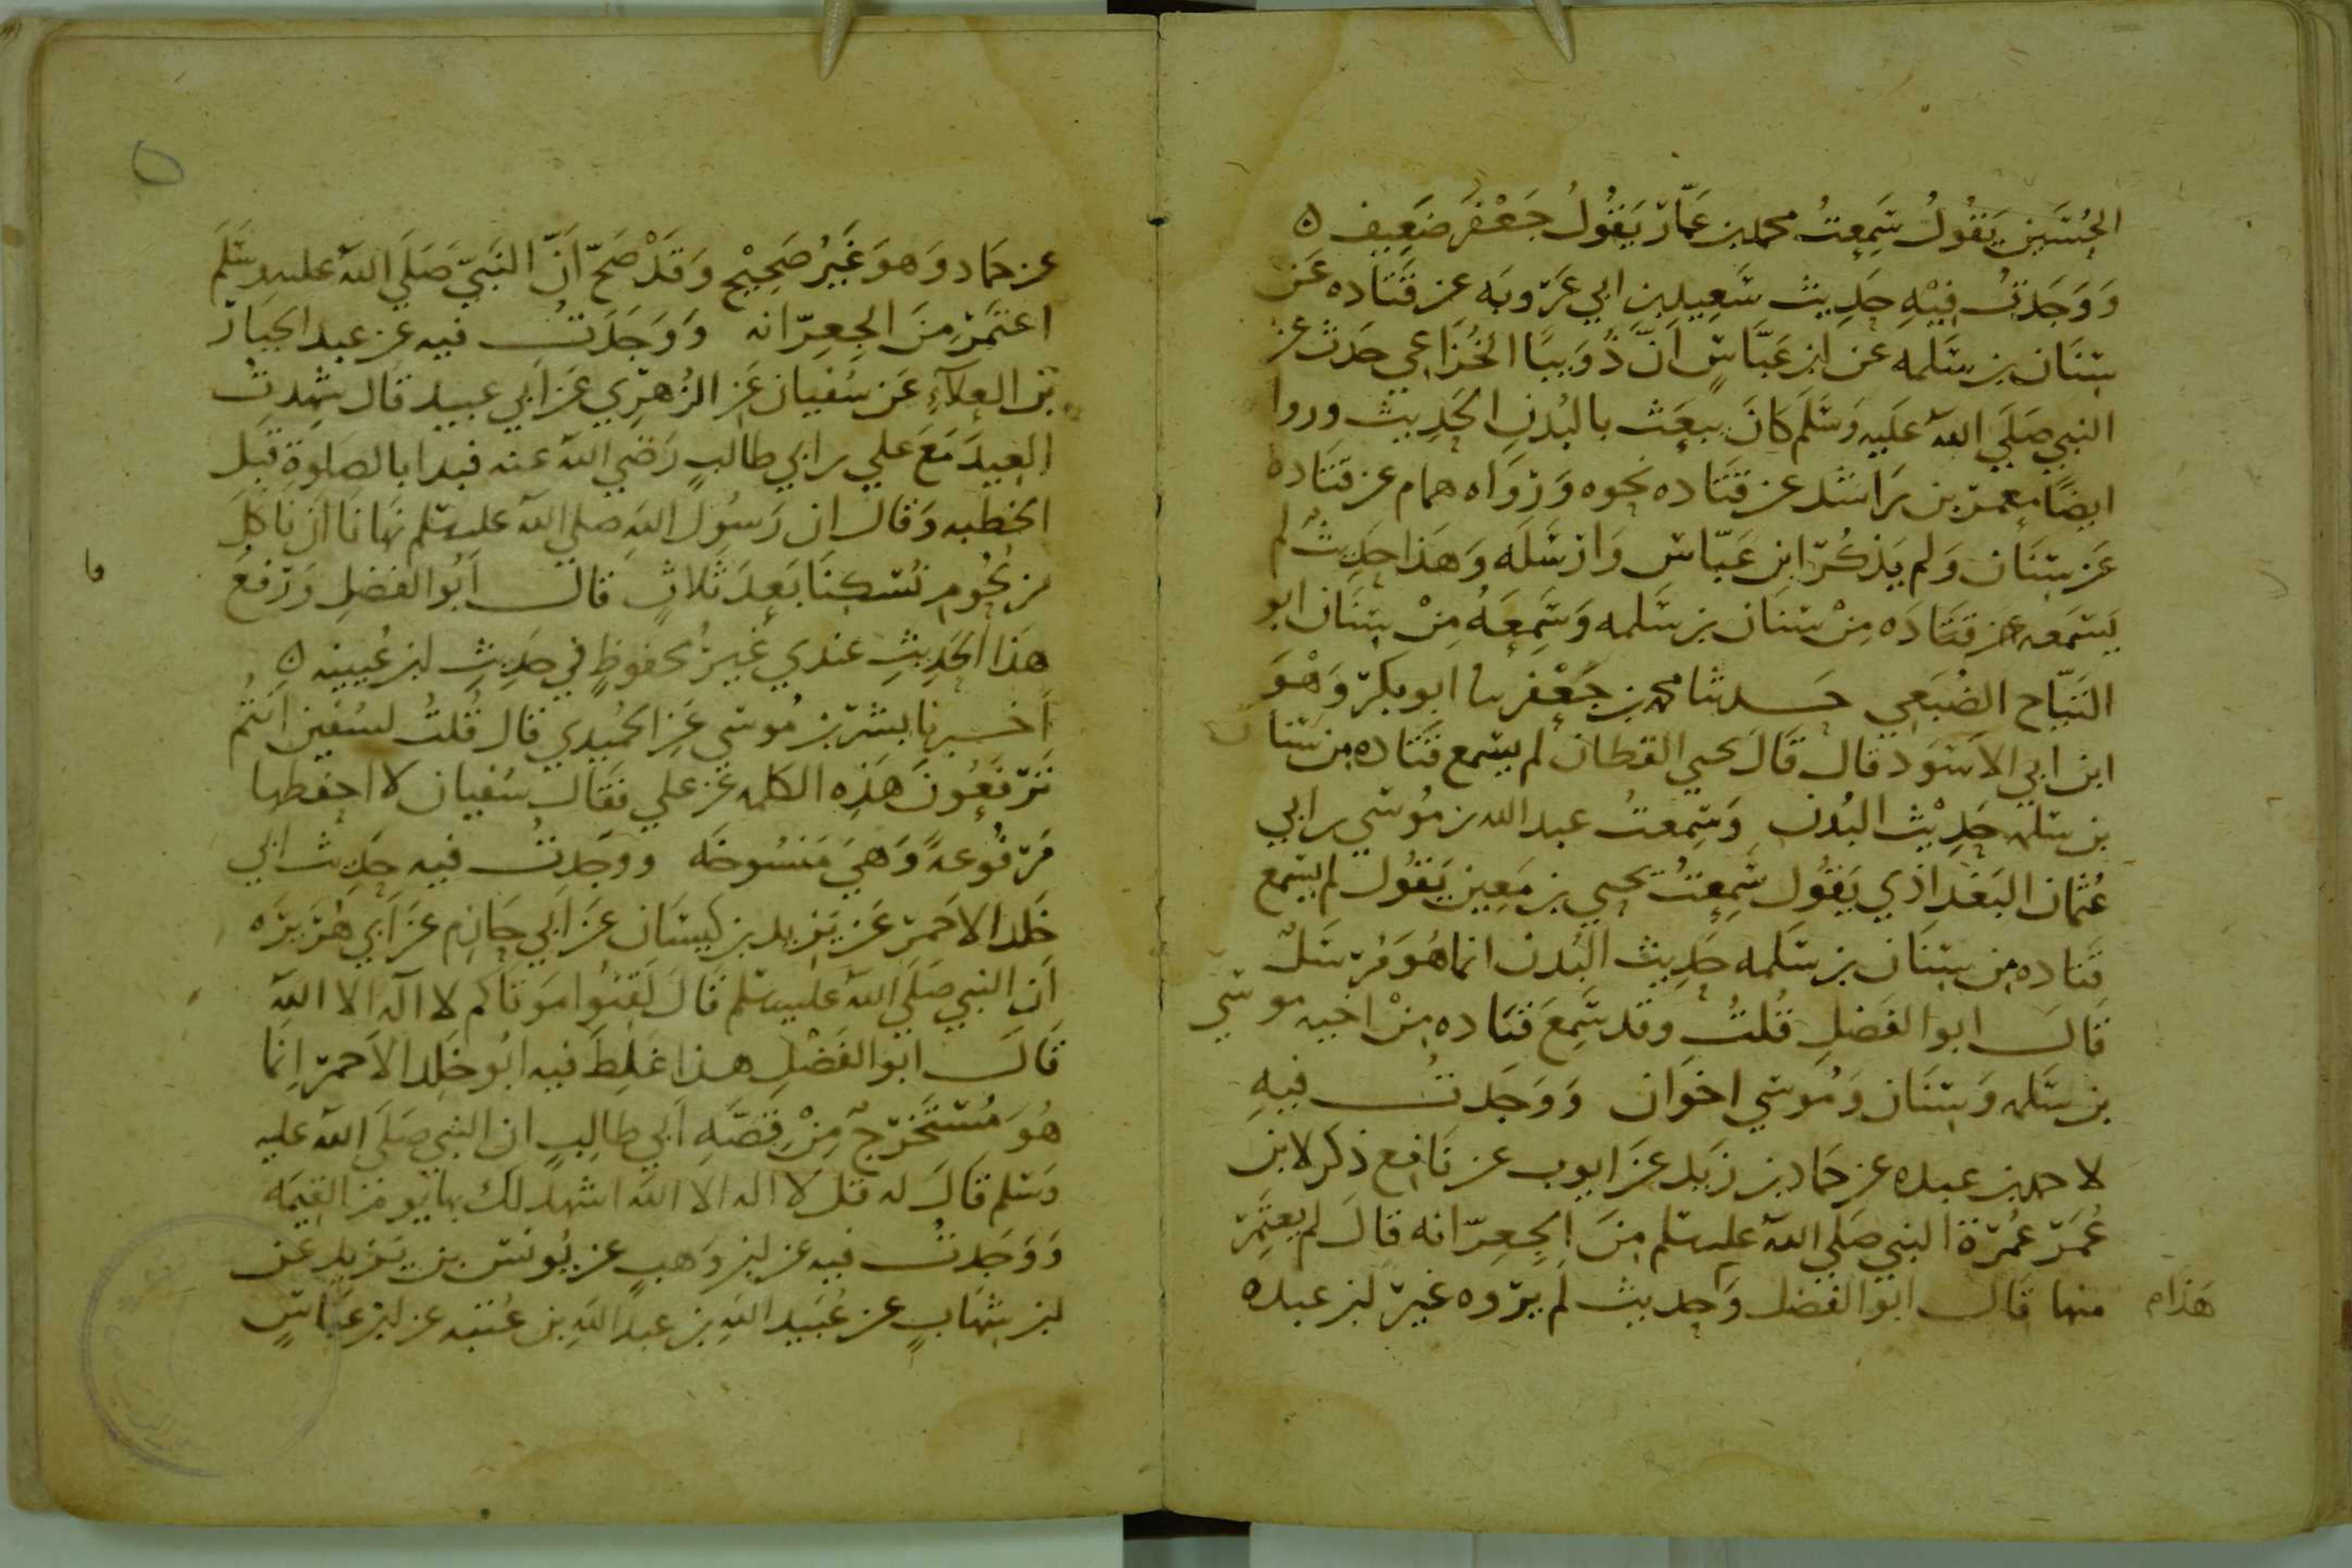 الحُسَين يَقُولُ سَمِعتُ محمد بن عَمّار يَقُولُ جَعْفَر ضَعِيف ه
وَوَجَدتُ فِيْهِ حَدِيث سَعِيد بن ابي عَرُوبَه عن قَتَاده عَن
سِنَان بن سَلمه عن ابن عَبَّاسٍ اَنَّ ذُوَيبًا الخُزَاعي حَدث عن
النبي صَلَي الله عَلَيه وَسَلَم كَانَ يبعَث بالبُدنِ الحَدِيث وروا
ايضًا معمر بن رَاشد عن قَتَاده نحوه وَرَوَاه همام عن قَتَاده
عَن سِنَان وَلم يَذكُر ابن عَبّاس وَارسَلَه وَهَذا حَدِيثٌ لم
يَسمَعه قَتَادَه مِنْ سنَان بن سَلمه وَسَمِعَهُ مِنْ سِنَان ابو
التَيَّاح الضُبَعي حَدثنا محمد بن جَعْفر نا ابو بكر وَهْوَ
ابن ابي الاَسوَد قال قَالَ يحيي القطان لم يسمع قَتَاده من سنان
بن سَلمه حَدِيْث البُدن وَسَمِعتُ عبد الله بن مُوسَي بن ابي
عُثمان البَغداذي يَقُول سَمِعتُ يحيي بن مَعِين يَقُول لم يسمع
قتاده من سِنَان بن سَلمه حَدِيث البُدن انما هُوَ مُرسَلٌ
قَالَ ابو الفَضلِ قُلتُ وقد سَمِعَ قتَاده مِنْ اخيه موسَي
بن سَلمه وَسِنَان وَمُوسَي اخوَان وَوَجَدتُ فيهِ
لاحمد بن عبده عن حَماد بن زَيد عَن ايوب عن نَافِع ذكر لابن
عُمَر عُمرَة النبي صَلَي الله عليه سلم مِنَ الجِعِرّانه قَالَ لم يعتَمِر
منها قَالَ ابو الفضل وَحديث لم يروه غير ابن عبده
هَذا م
عن حمَاد وَهوَ غَيرُ صَحِيْح وَقَدْ صَحّ اَنّ النَبيّ صَلَي الله عليه وسَلَم
اعتَمَر مِنَ الجِعِرّانه وَوَجَدَتُ فيه عن عبد الجبار
بن العلآءِ عَن سُفيان عَن الزُهرِي عَن اَبي عبيد قَال شهدتُ
العِيدَ مَعَ علي بن ابي طالبٍ رَضي الله عنه فبدا بالصلوةِ قبل
الخطبه وَقال ان رَسوُل اللهِ صلي الله عليه سلم نهانَا اَن نَاكُلَ
من لحُوم نُسكِنَا بَعدَ ثلاثٍ قال اَبُو الفضلِ وَرَفعُ
هَذَا الحَدِيثِ عندي غيرُ محفوظٍ في حَدِيثِ ابن عُيينه ه
اَخبرنا بشر بن مُوسَي عَنِ الحُميدي قَال قُلتُ لسُفين اَنتُم
تَرفعُونَ هَذِه الكلمه عَن علي فقال سُفيان لا احفظها
مَرفوُعهً وَهيَ مَنسُوخَه ووجَدتُ فيه حَدِيث ابي
خَلد الاحمر عَن يَزيد بن كيسَان عَن اَبي حَازِم عَن اَبي هُرَيرَه
اَن النبي صَلَي الله عليه سلم قَالَ لَقِنُوا مَوتَاكم لا اله الا الله
قَالَ ابو الفَضْلِ هذا غَلِطَ فيه ابُو خَلد الاَحمر اِنما
هُوَ مُستَخرَجٌ مِنْ قِصَّهِ اَبي طالِبٍ ان النبي صَلَي الله عليه
وَسَلم قَالَ له قل لا اله الا الله اشهد لَك بها يَومَ القِيمَه
وَوَجَدتُ فيه عن ابن وَهبٍ عن يُونس بن يَزيد عَن
ابن شهَابٍ عن عُبَيد اللهِ بن عبد اللهِ بن عُتبه عن ابن عَبّاسٍ